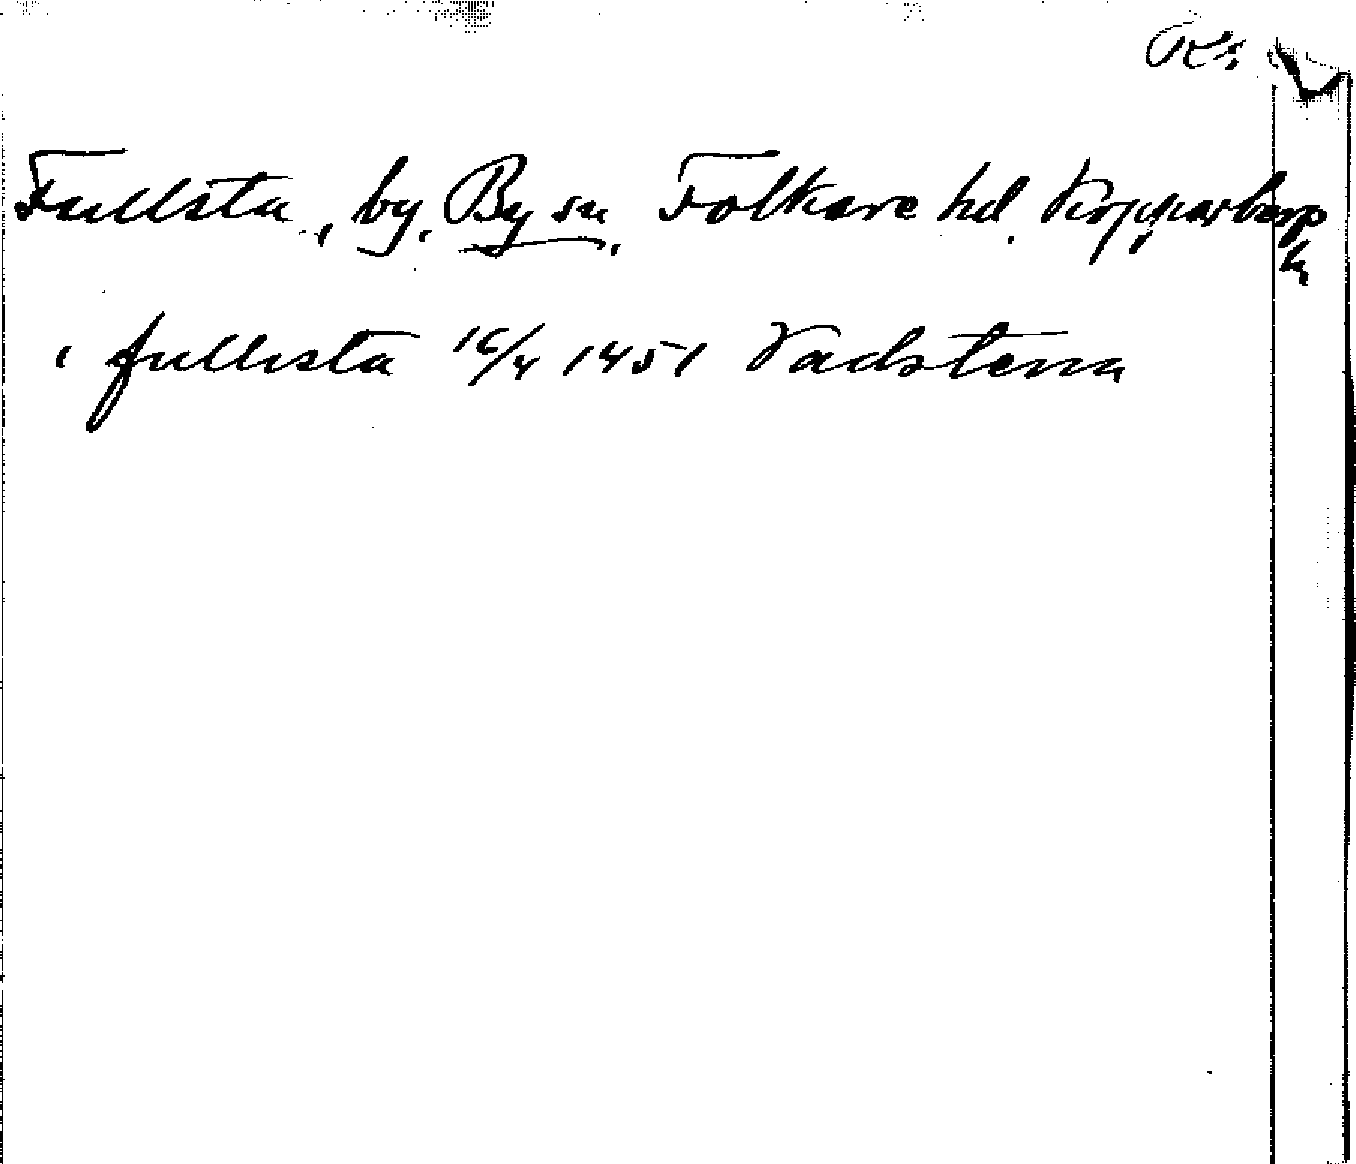 Fullsta, by, By sn, Folkare hd. Kopparbergs
l.
i fullista 16/4 1451 Vadstena